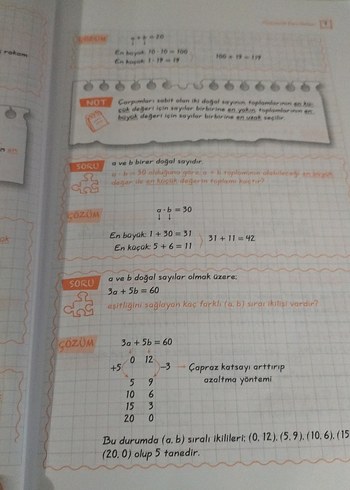 ÇÖZÜM
a + b = 20
En büyük: 10 · 10 = 100
En küçük: 1 · 19 = 19
100 + 19 = 119
NOT
Çarpımları sabit olan iki doğal sayının toplamlarının en kü-
çük değeri için sayılar birbirine en yakın, toplamlarının en
büyük değeri için sayılar birbirine en uzak seçilir.
SORU
a ve b birer doğal sayıdır.
a · b = 30 olduğuna göre, a + b toplamının alabileceği en büyük
değer ile en küçük değerin toplamı kaçtır?
ÇÖZÜM
a · b = 30
En büyük: 1 + 30 = 31
En küçük: 5 + 6 = 11
31 + 11 = 42
SORU
a ve b doğal sayılar olmak üzere;
3a + 5b = 60
eşitliğini sağlayan kaç farklı (a, b) sıralı ikilisi vardır?
ÇÖZÜM
3a + 5b = 60
0 12
+5 -3 → Çapraz katsayı arttırıp
azaltma yöntemi
5 9
10 6
15 3
20 0
Bu durumda (a, b) sıralı ikilileri; (0, 12), (5, 9), (10, 6), (15
(20, 0) olup 5 tanedir.